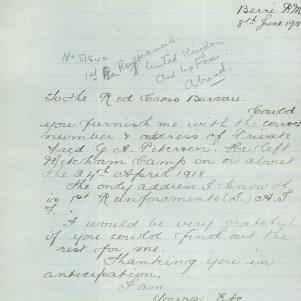 Berri R.M.
8th June 1918
1st Reinforcements
United Kingdom
Abroad.
To the Red Cross Bureau.
Could
you furnish me with the correct
number & address of Private
Fred G. A. Petersen. He left
Mitcham Camp on or about
the 24th April 1918
The only address I know of
is 1st Reinforcments (S.) A.I
F.
I would be very grateful
if you could find out the
rest for me.
Thanking you in
anticipation.
I am
Yours Etc